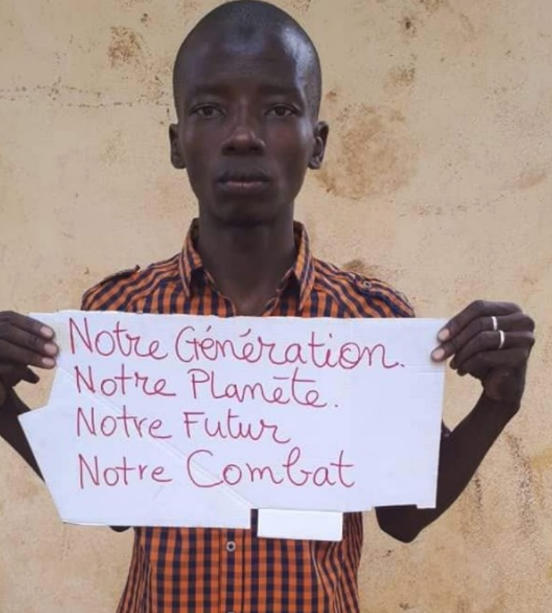 Notre Génération.
Notre Planète.
Notre Futur
Notre Combat